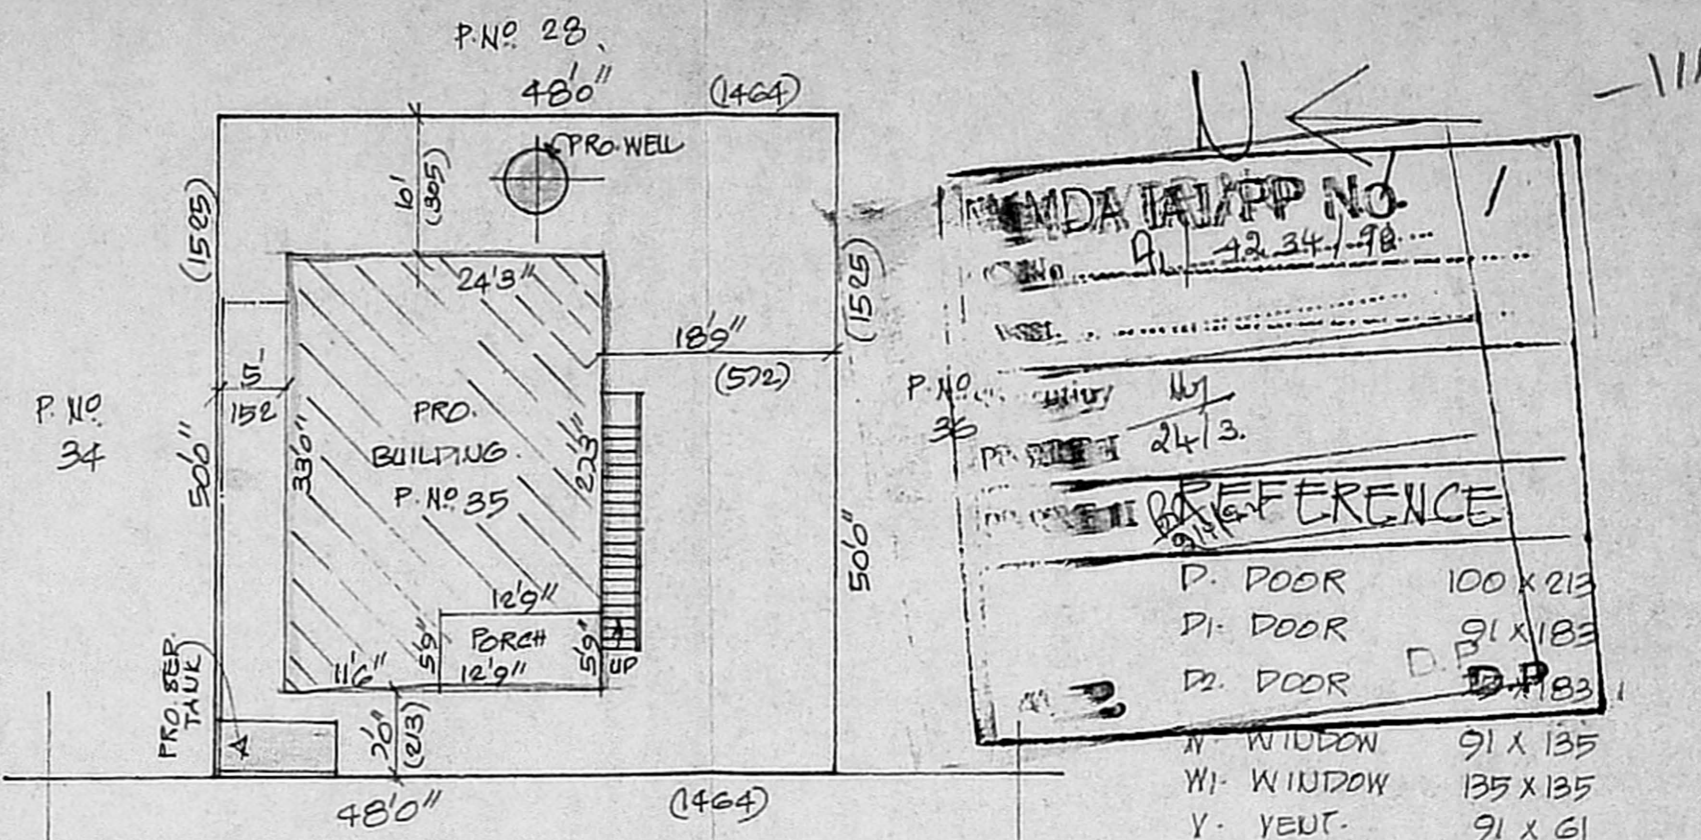 P.Nº 28.
48'0" (1464)
N
PRO. WELL
10'
(305)
(1525)
24'3"
18'9"
(572)
(1525)
5'-
152
P. Nº
34
50'0"
33'0"
PRO.
BUILDING.
P.Nº 35
27'3"
50'0"
P. Nº
36
12'9"
PORCH
12'9"
5'9"
5'9"
UP
11'6"
PRO. SEP.
TANK
20'0"
(213)
48'0" (1464)
MDA IAI/PP No.
4234/98
24/3.
REFERENCE
D. DOOR 100 X 213
D1. DOOR 91 X 183
D.P
D2. DOOR D.P X 183
WINDOW 91 X 135
W1. WINDOW 135 X 135
V. VENT. 91 X 61